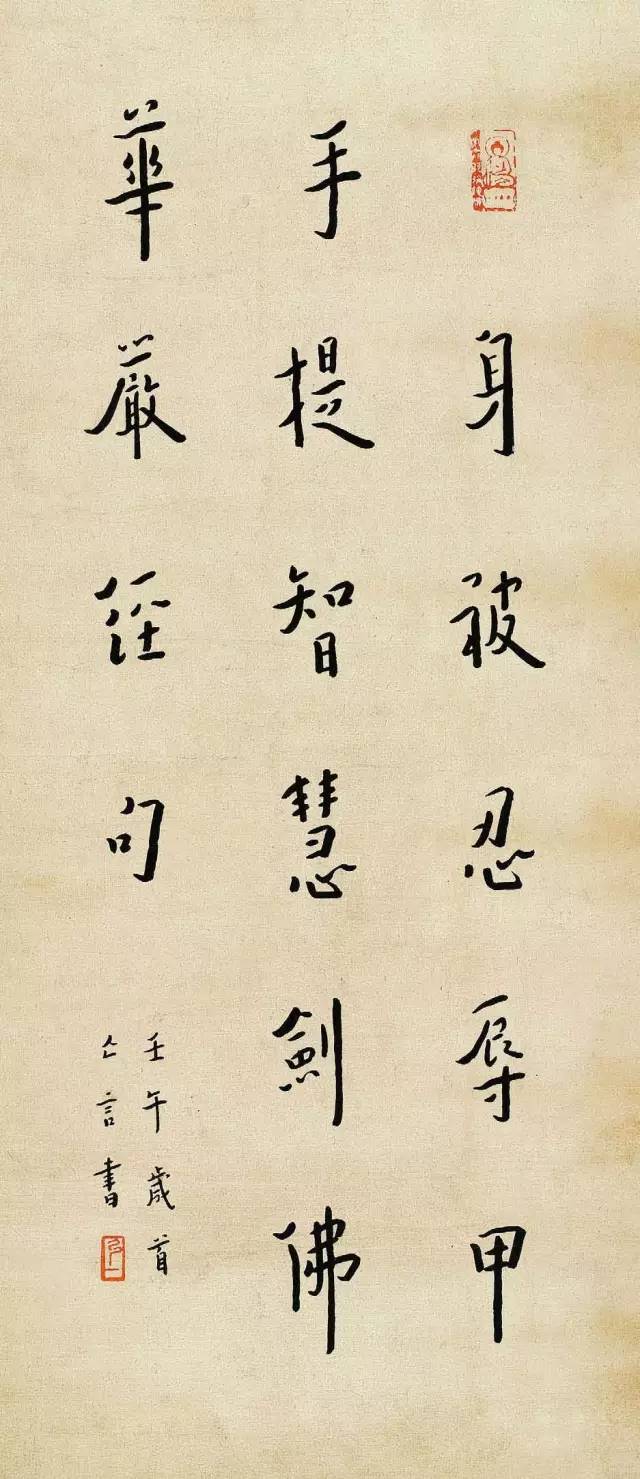 身被忍辱甲
手提智慧劍佛
華嚴經句
壬午歲首
亾言書
弘一